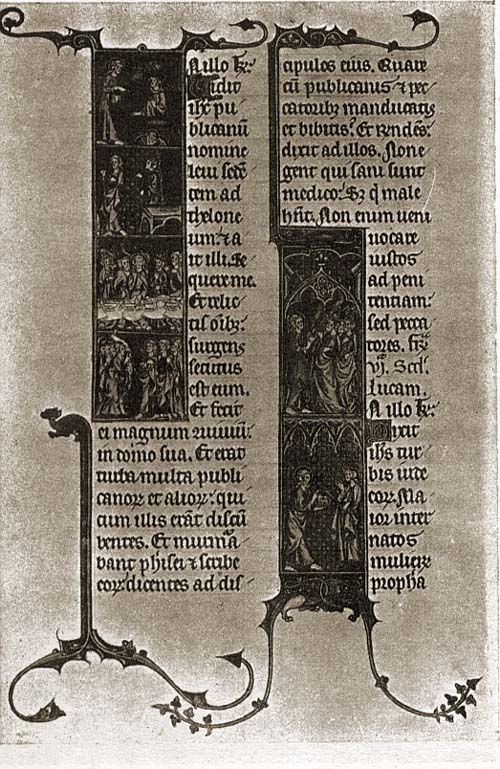 N illo t̃:
Vidit
ihc pu
blicanū
nomine
leui sedē
tem ad
thelone
um: ⁊ a
it illi. Se
quere me.
Et relic
tis oīb3:
surgens
secutus
est eum.
Et fecit
ei magnum
in domo sua. Et erat
turba multa publi
canoꝝ et alioꝝ: qui
cum illis erāt discū
bentes. Et murmͣa
bant phisei ⁊ scribe
eoꝝ dicentes ad dis
cipulos eius. Quare
cū publicanis ⁊ pec
catorib3 manducatis
et bibitis? Et rñdēs:
dixit ad illos. Non e
gent qui sani sunt
medico: S3 q̇ male
hñt. Non enim ueni
uocare
iustos
ad peni
tentiam:
sed pecca
tores.
Scd̃.
lucam.
N illo t̃:
Dixit
ihs tur
bis iude
oꝝ. Ma
ior inter
natos
mulieꝝ
propha